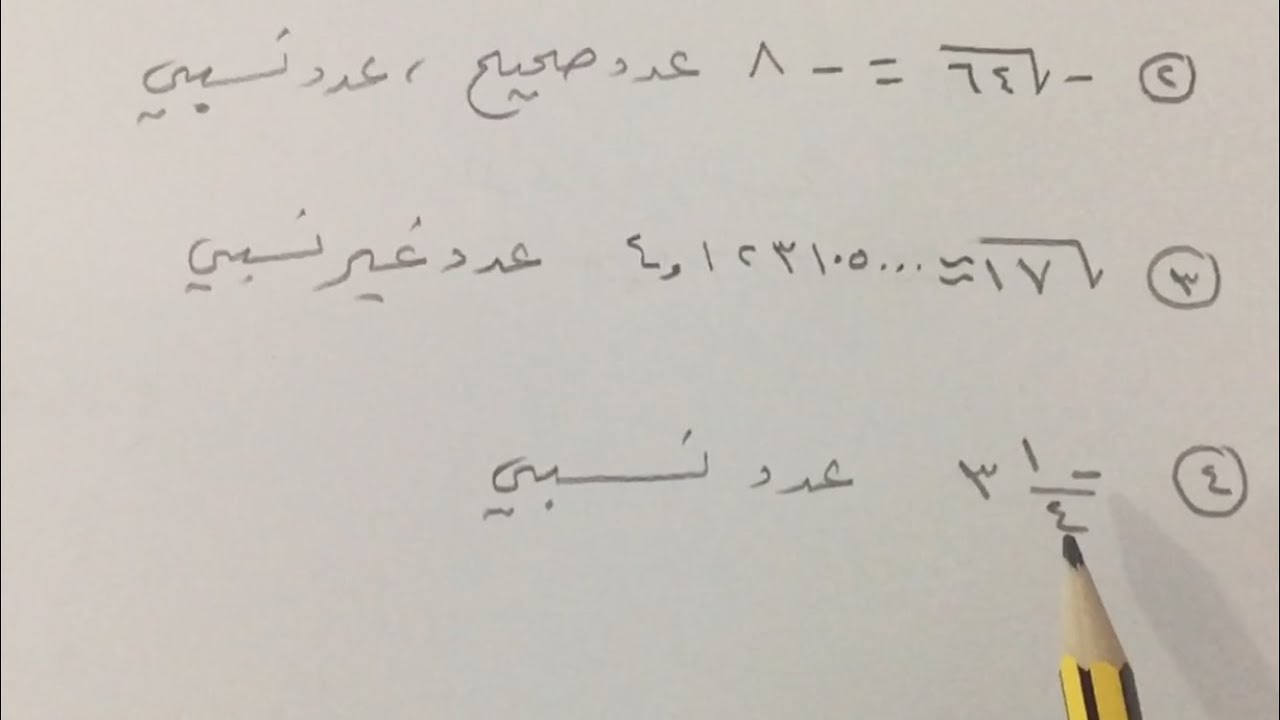 ② -√٦٤ = -٨ عدد صحيح ، عدد نسبي
③ √١٧ ≈ ٤,١٢٣١٠٥... عدد غير نسبي
④ -٣ ١/٤ عدد نسبي